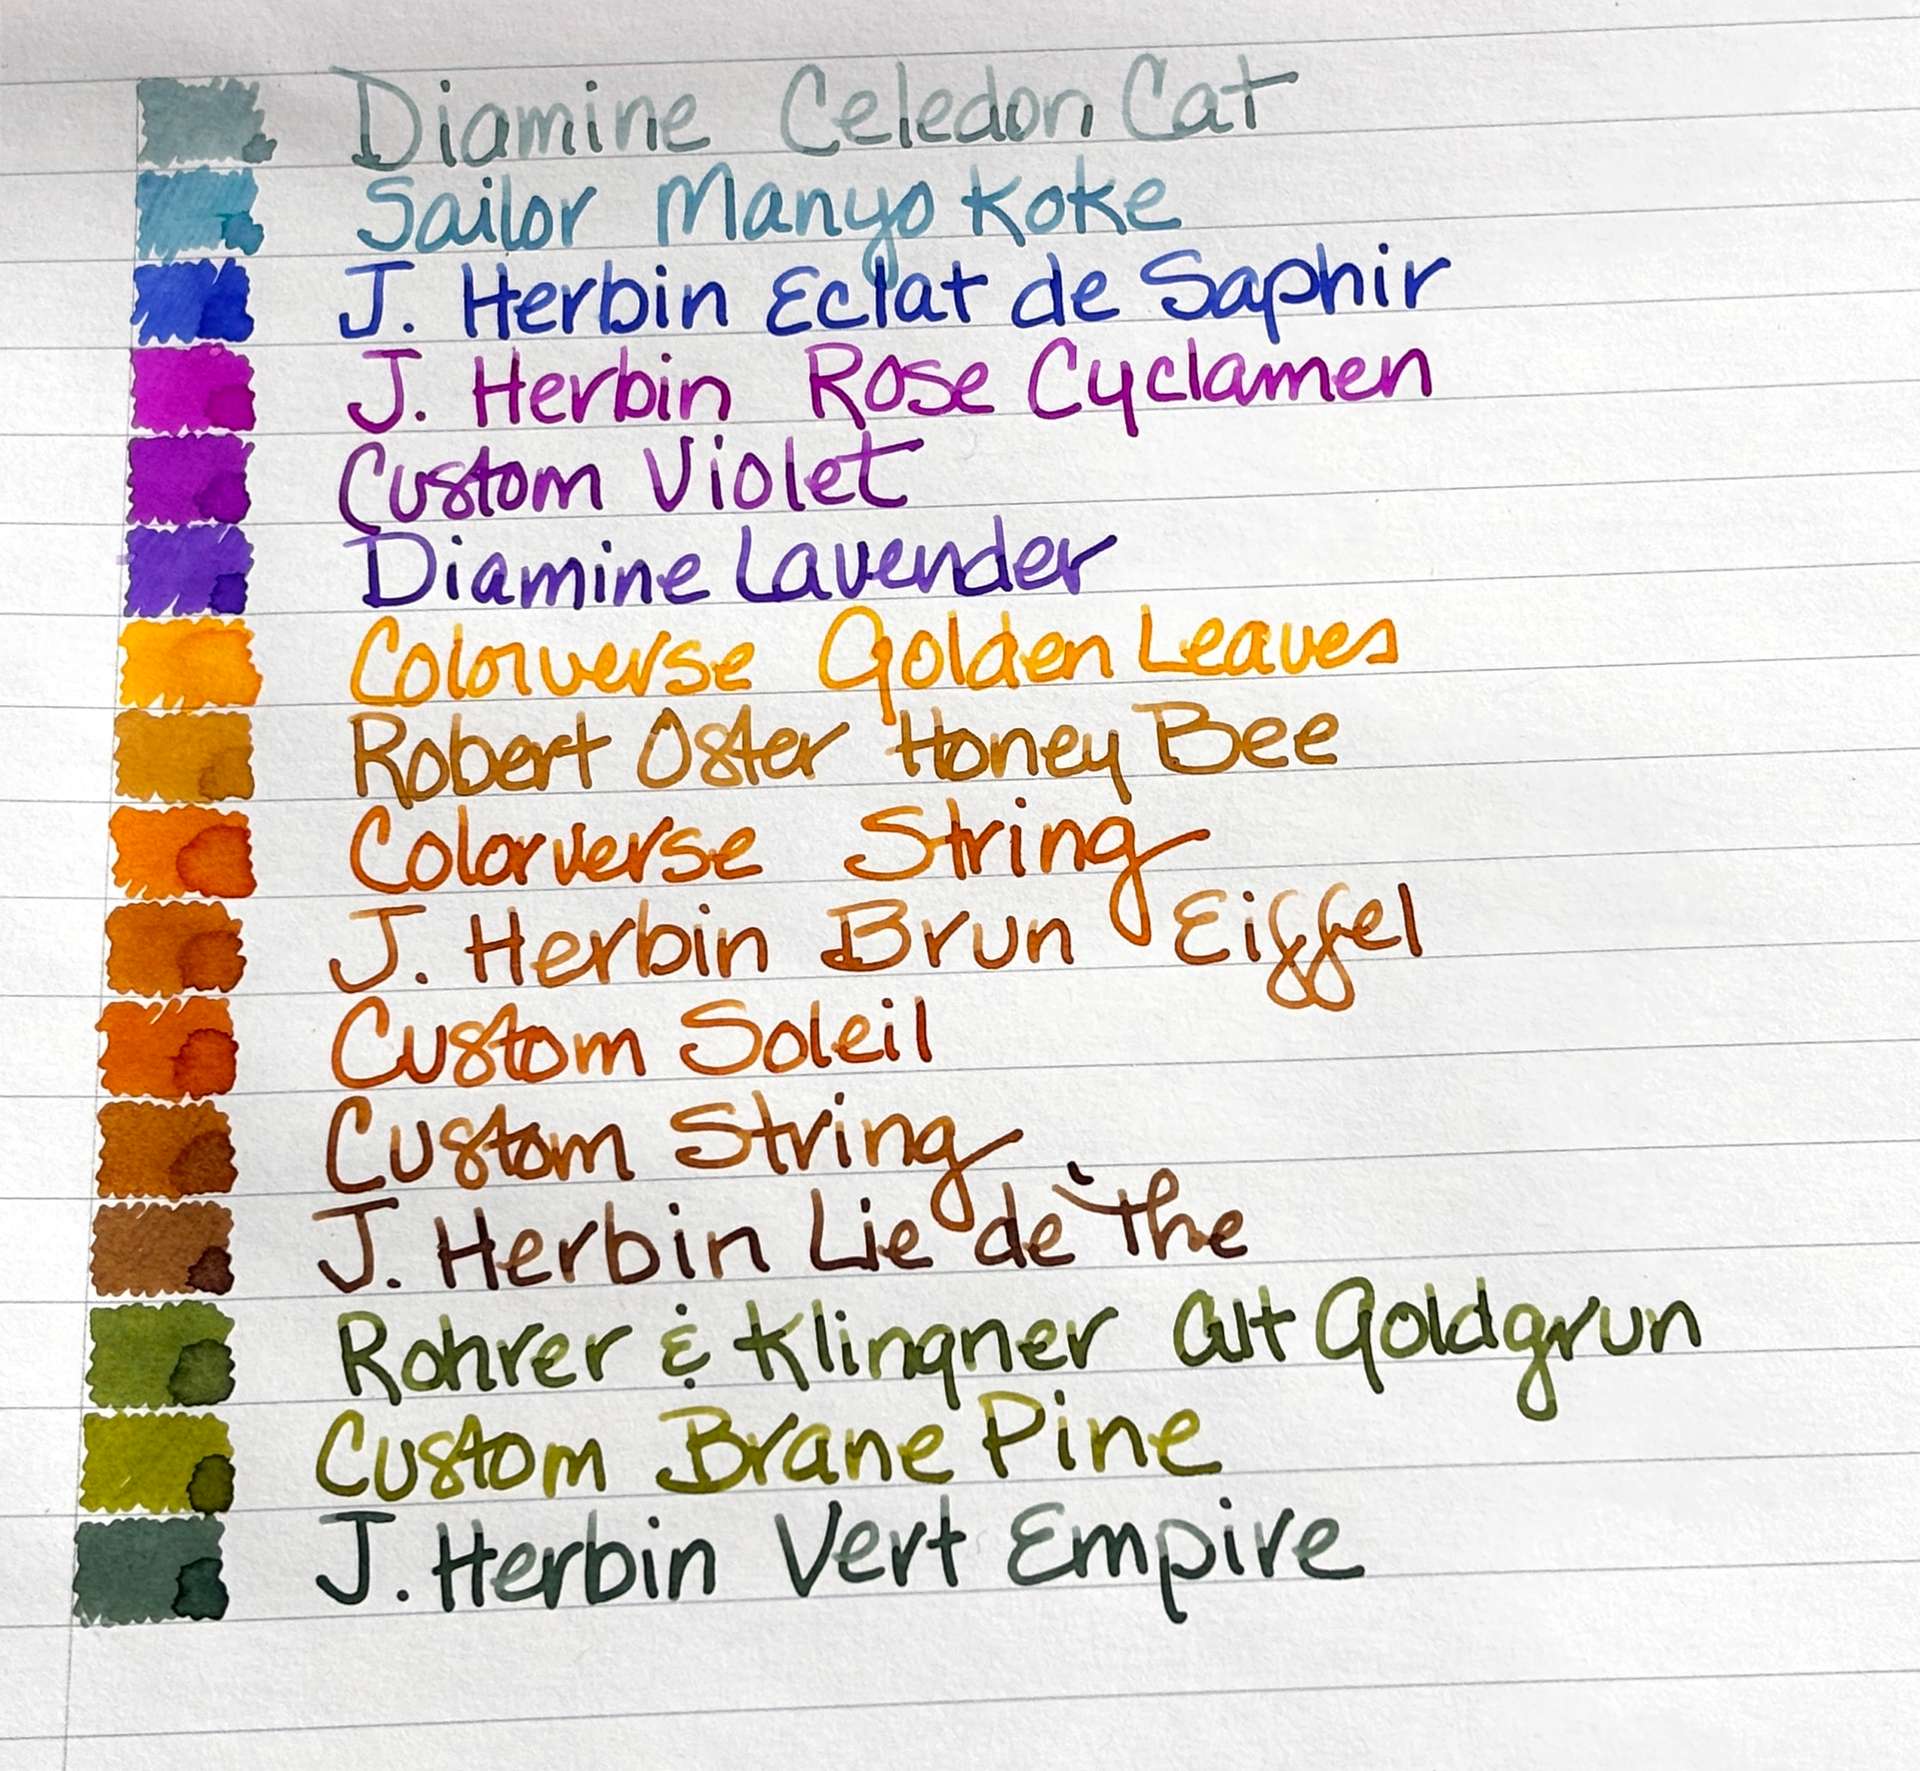 Diamine Celedon Cat
Sailor Manyo Koke
J. Herbin Eclat de Saphir
J. Herbin Rose Cyclamen
Custom Violet
Diamine Lavender
Colorverse Golden Leaves
Robert Oster Honey Bee
Colorverse String
J. Herbin Brun Eiffel
Custom Soleil
Custom String
J. Herbin Lie de The
Rohrer & Klingner Alt Goldgrun
Custom Brane Pine
J. Herbin Vert Empire